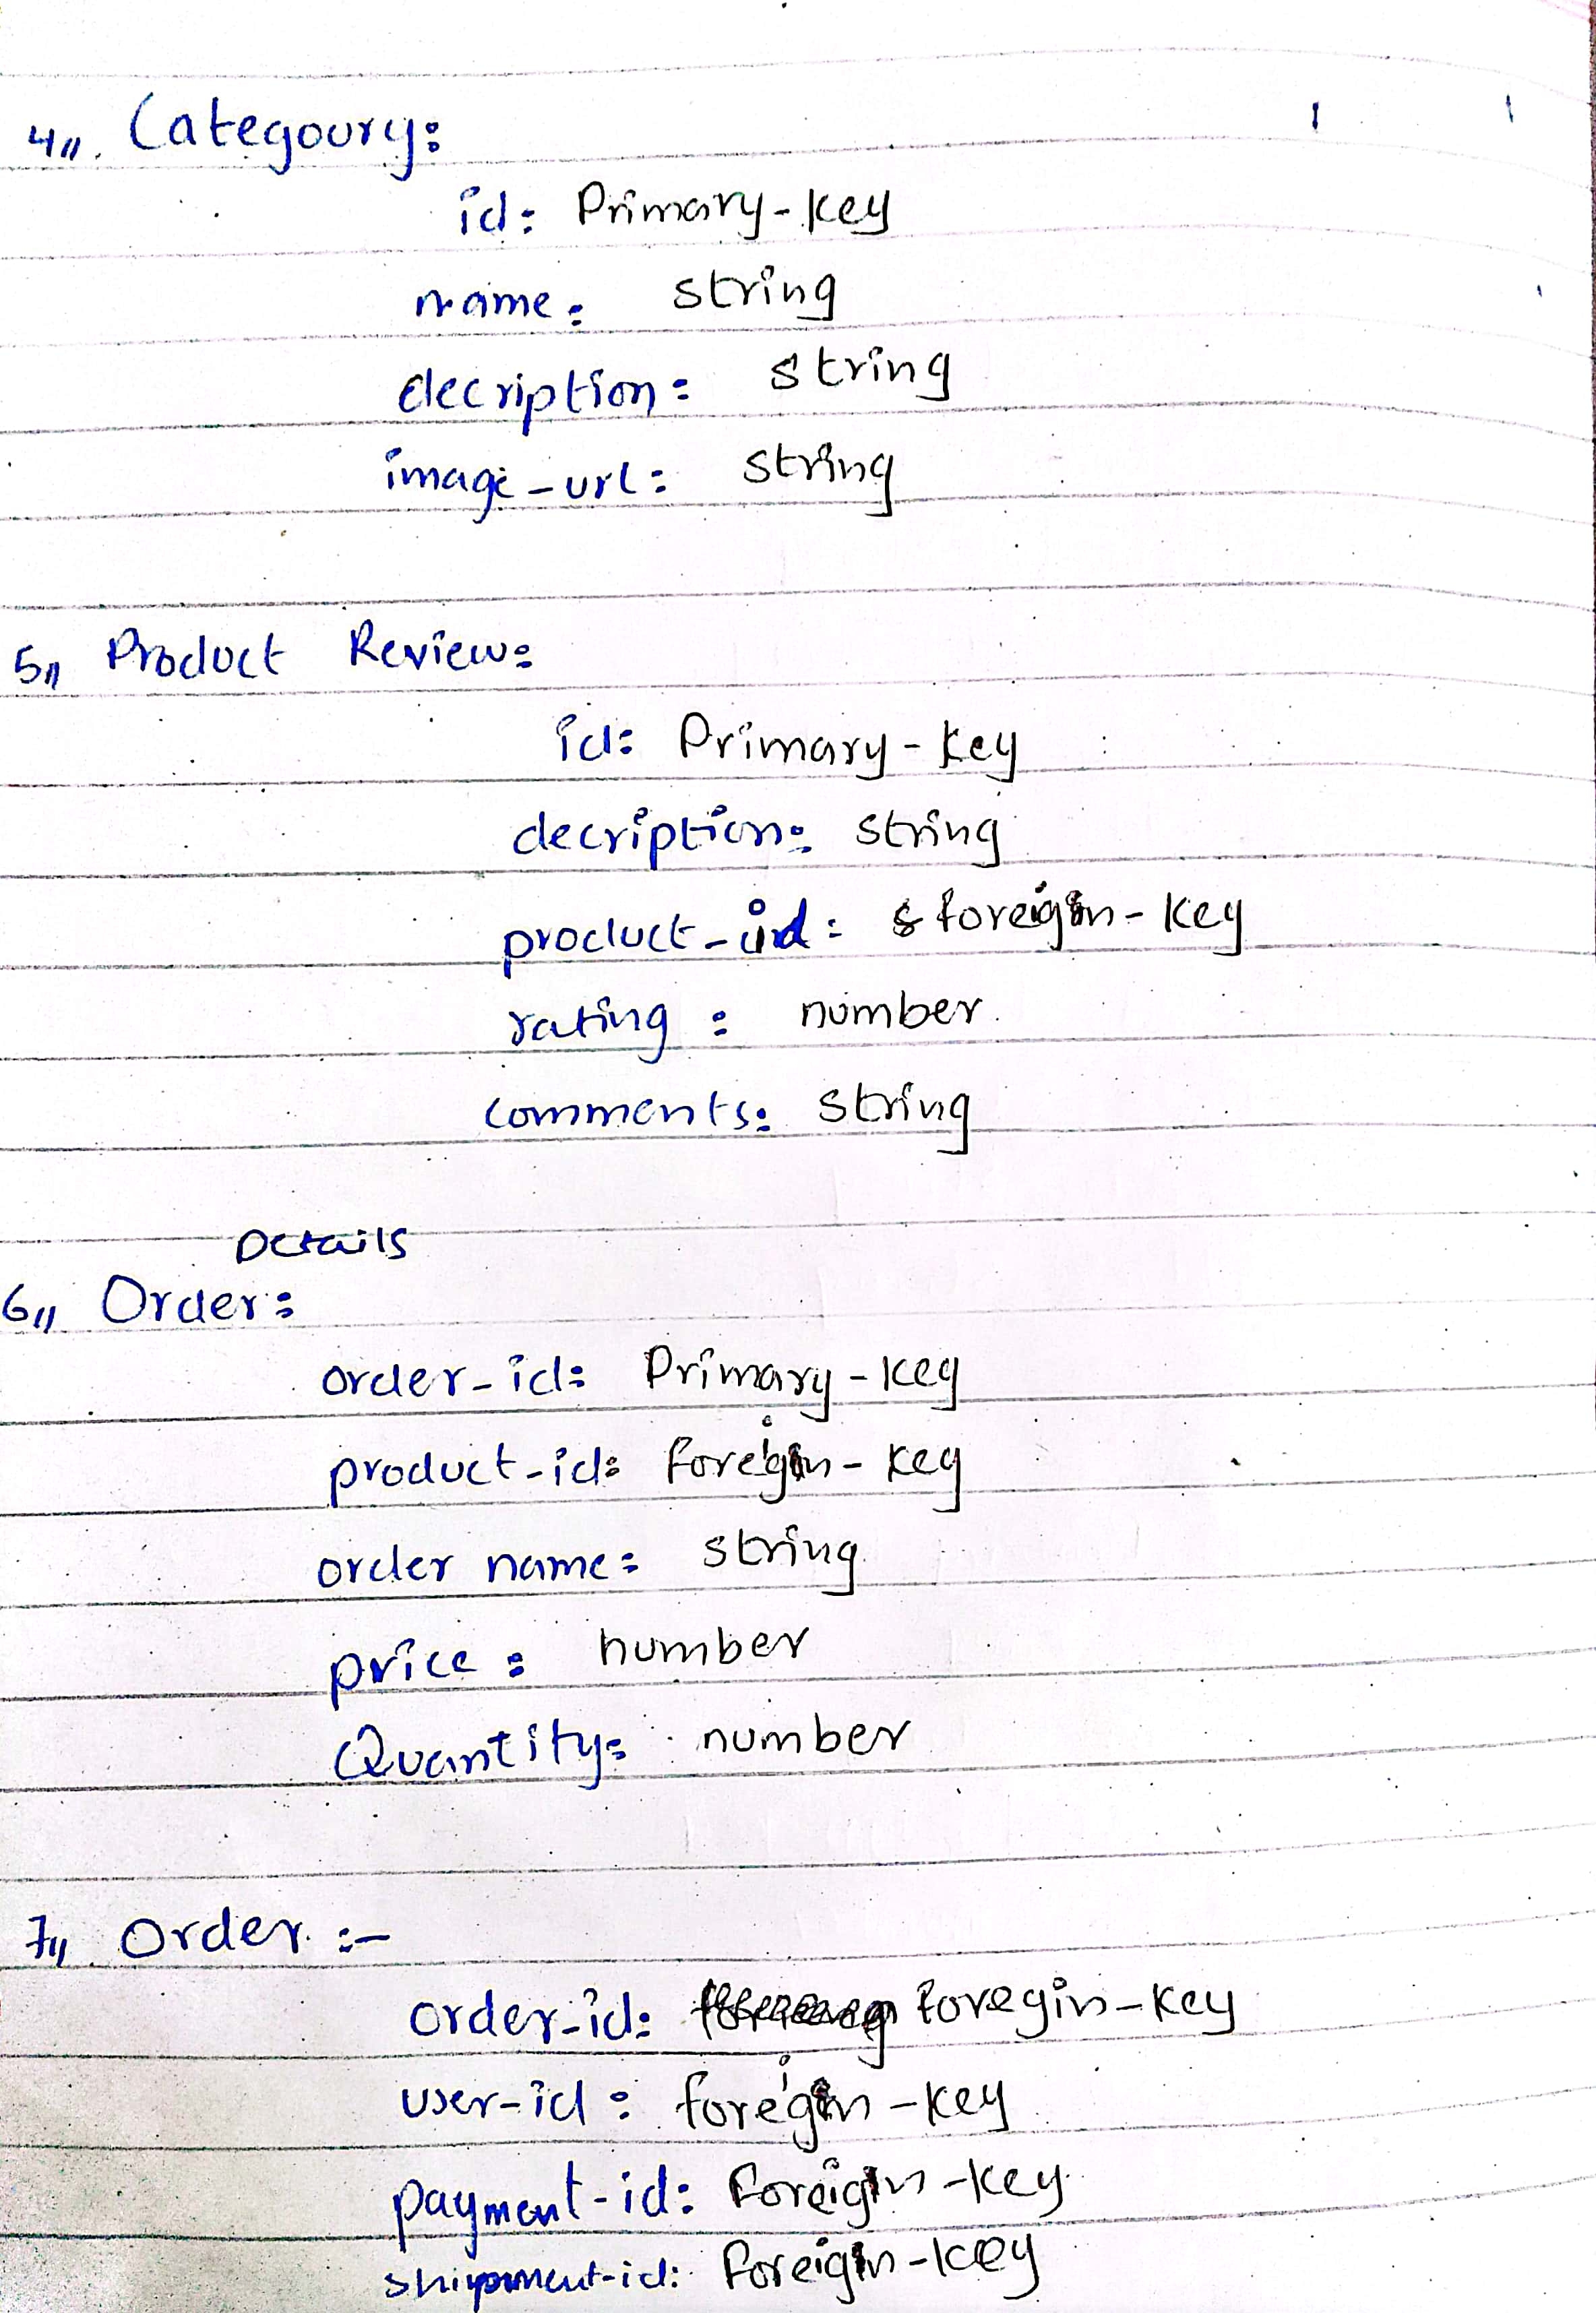 4,, Categoury:
id: Primary-key
name: string
decription: string
image-url: string
5,, Product Review:
id: Primary-key
decription: string
product-id: foreigin-key
rating: number
comments: string
Details
6,, Order:
order-id: Primary-key
product-id: foreigin-key
order name: string
price: number
Quantity: number
7,, Order:-
order-id: foregin-key
user-id: foregin-key
payment-id: foreigin-key
shipment-id: foreigin-key